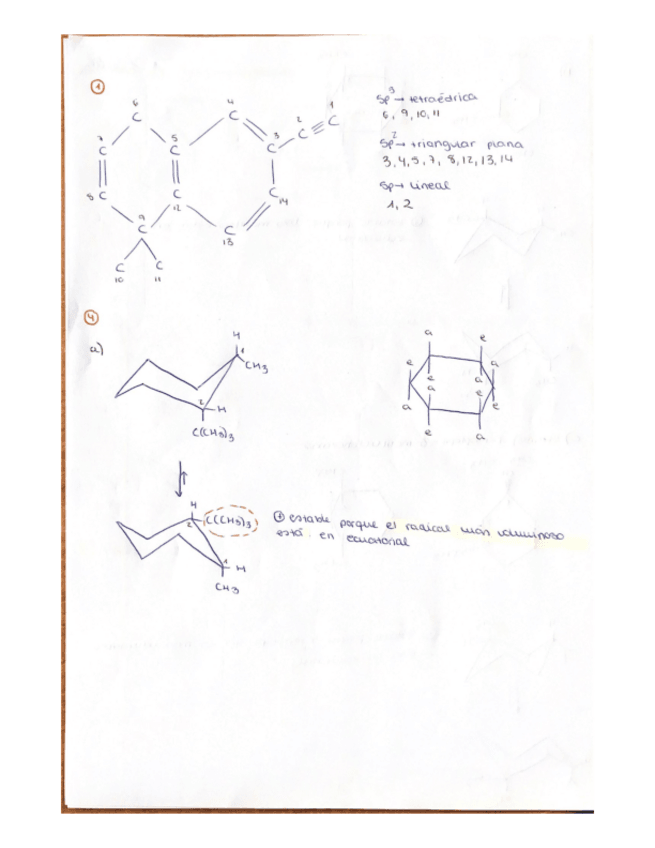 1
6 4 1
C C 2 C
7 5 3 C
C C C
8 C C C
9 12 14
C C
13
C C
10 11
Sp3 → tetraédrica
6, 9, 10, 11
Sp2 → triangular plana
3, 4, 5, 7, 8, 12, 13, 14
Sp → Lineal
1, 2
4
a)
H
1
CH3
2 H
C(CH3)3
a e
e a
e a
a e
a e
e a
H
C(CH3)3
2
1 H
CH3
⊕ estable porque el radical más voluminoso
está en ecuatorial